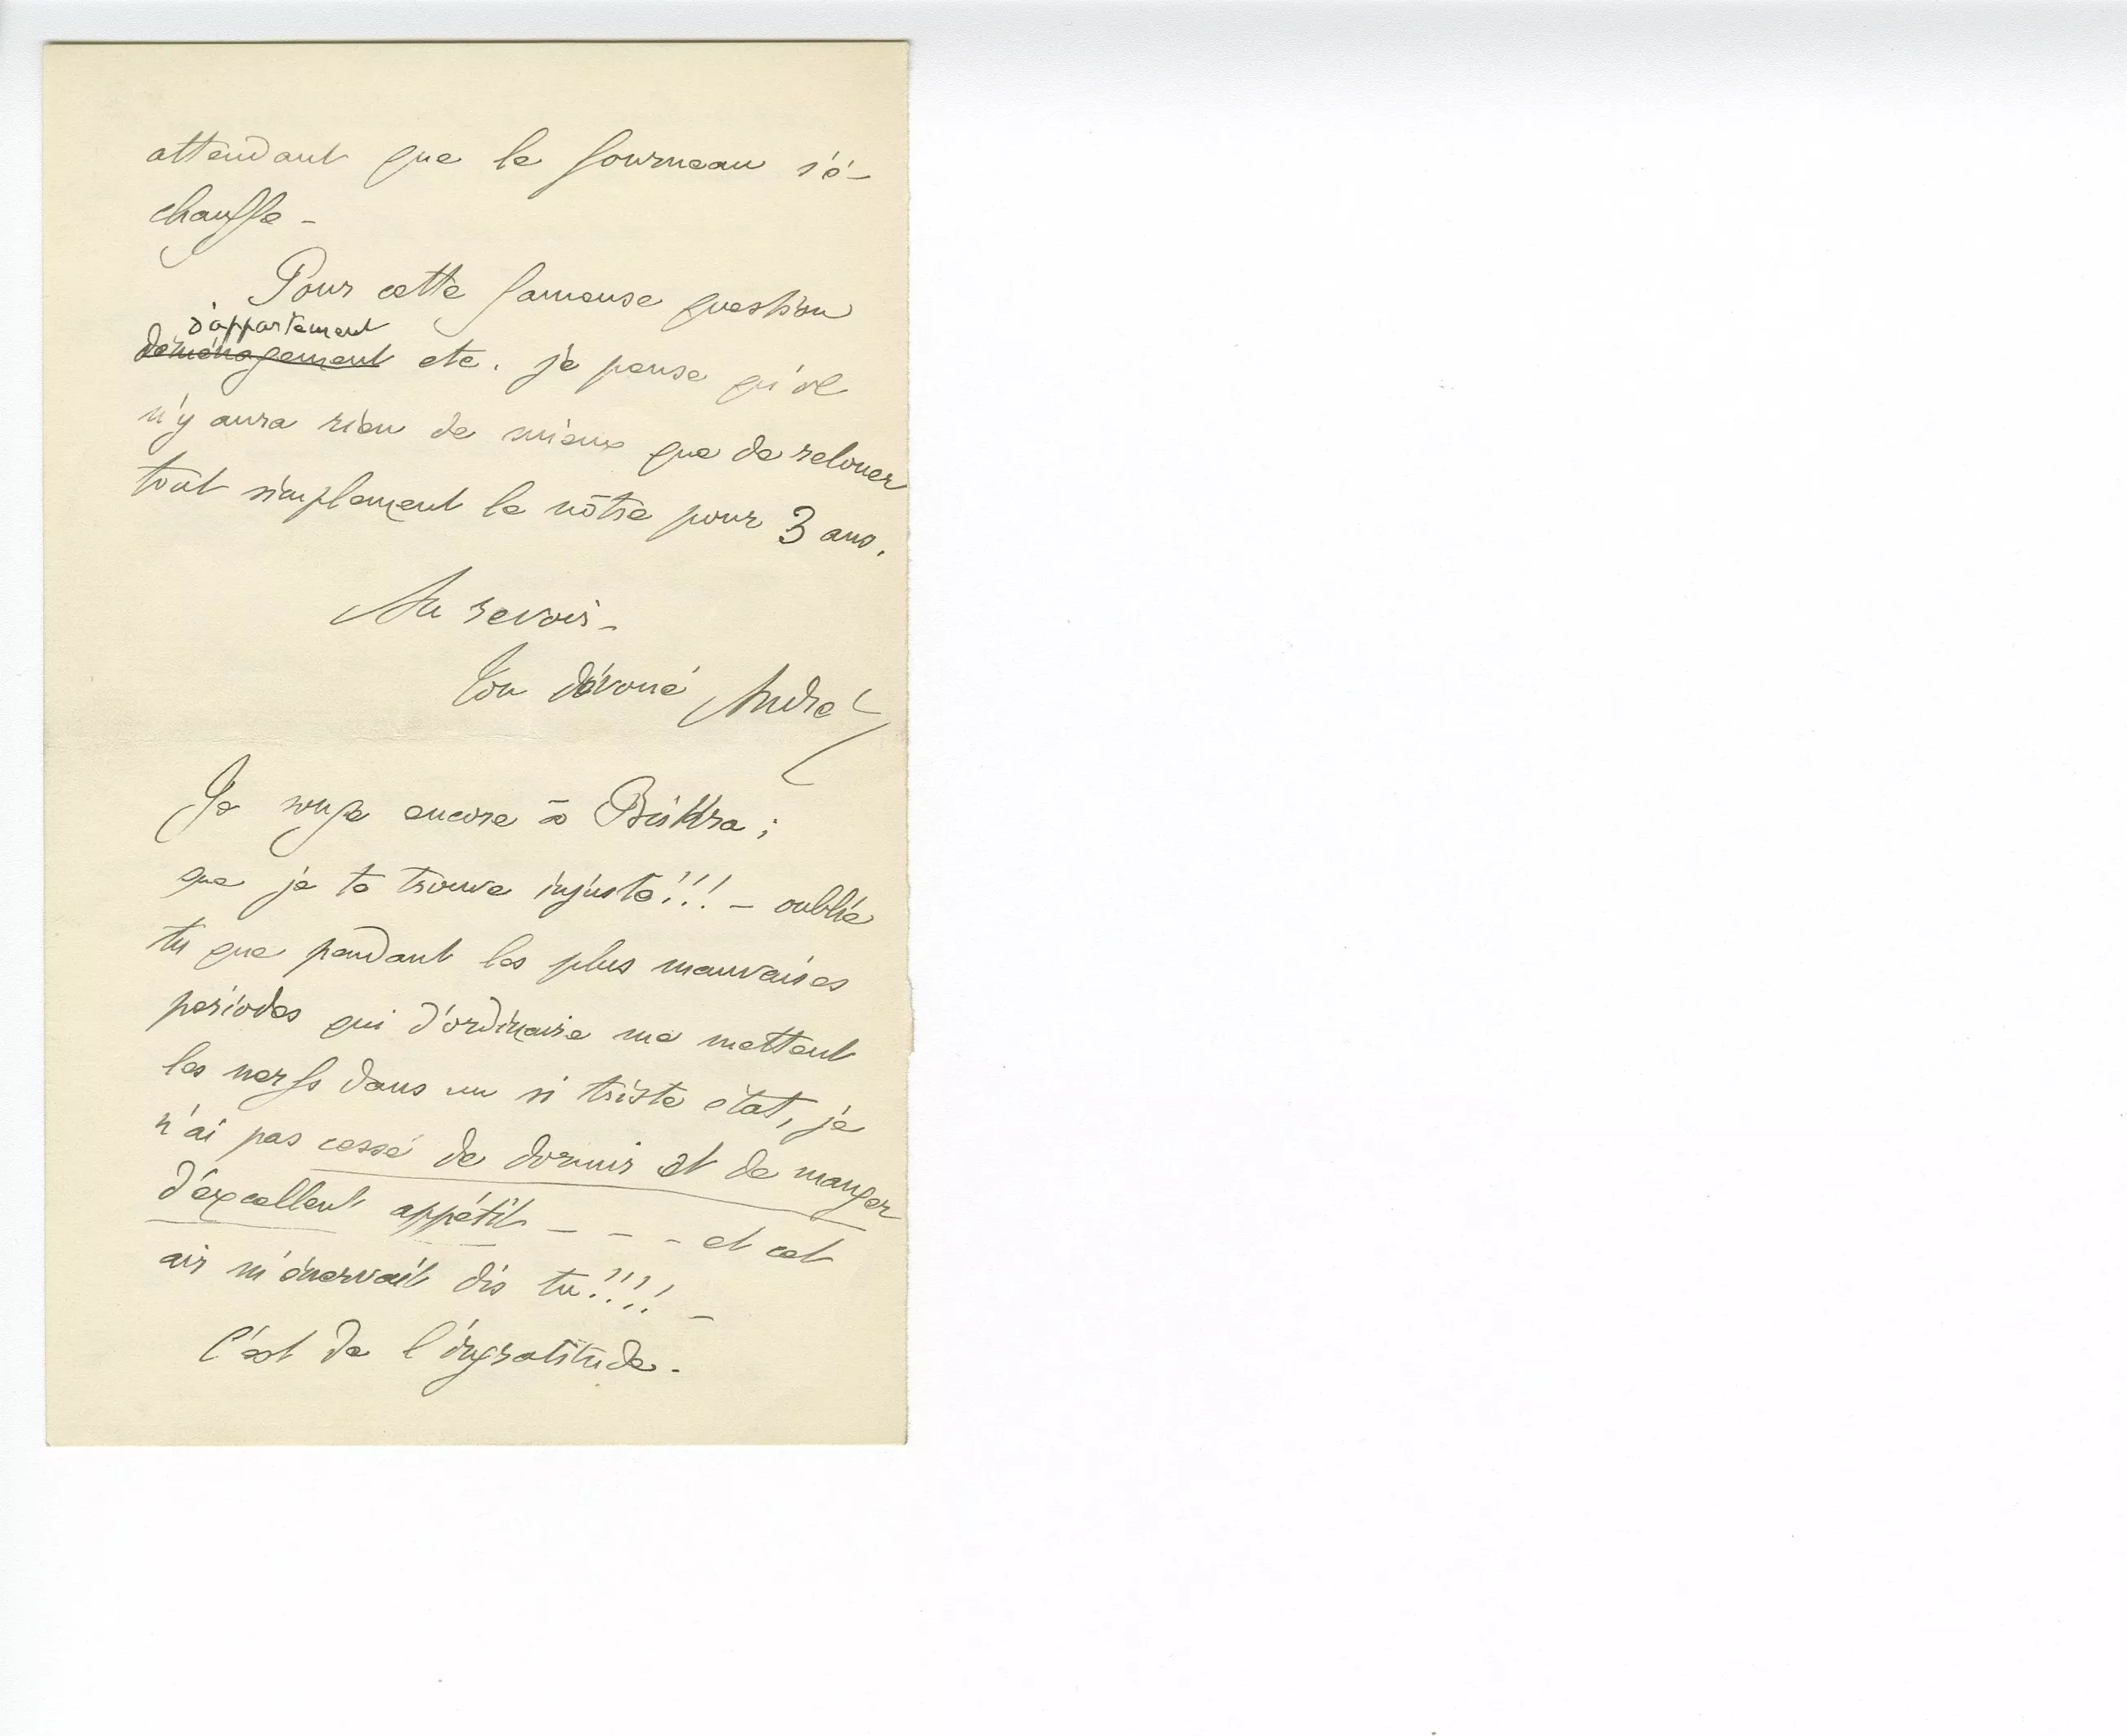 attendant que le fourneau s'é-
chauffe -
Pour cette fameuse question
d'appartement
déménagement etc. je pense qu'il
n'y aura rien de mieux que de relouer
tout simplement le nôtre pour 3 ans.
Au revoir -
Ton dévoué André
Je songe encore à Biskra ;
que je te trouve injuste!!! - oublie
tu que pendant les plus mauvaises
periodes qui d'ordinaire me mettent
les nerfs dans un si triste état, je
n'ai pas cessé de dormir et de manger
d'excellent appétit - - - et cet
air m'énervait dis tu!!!! -
C'est de l'ingratitude.